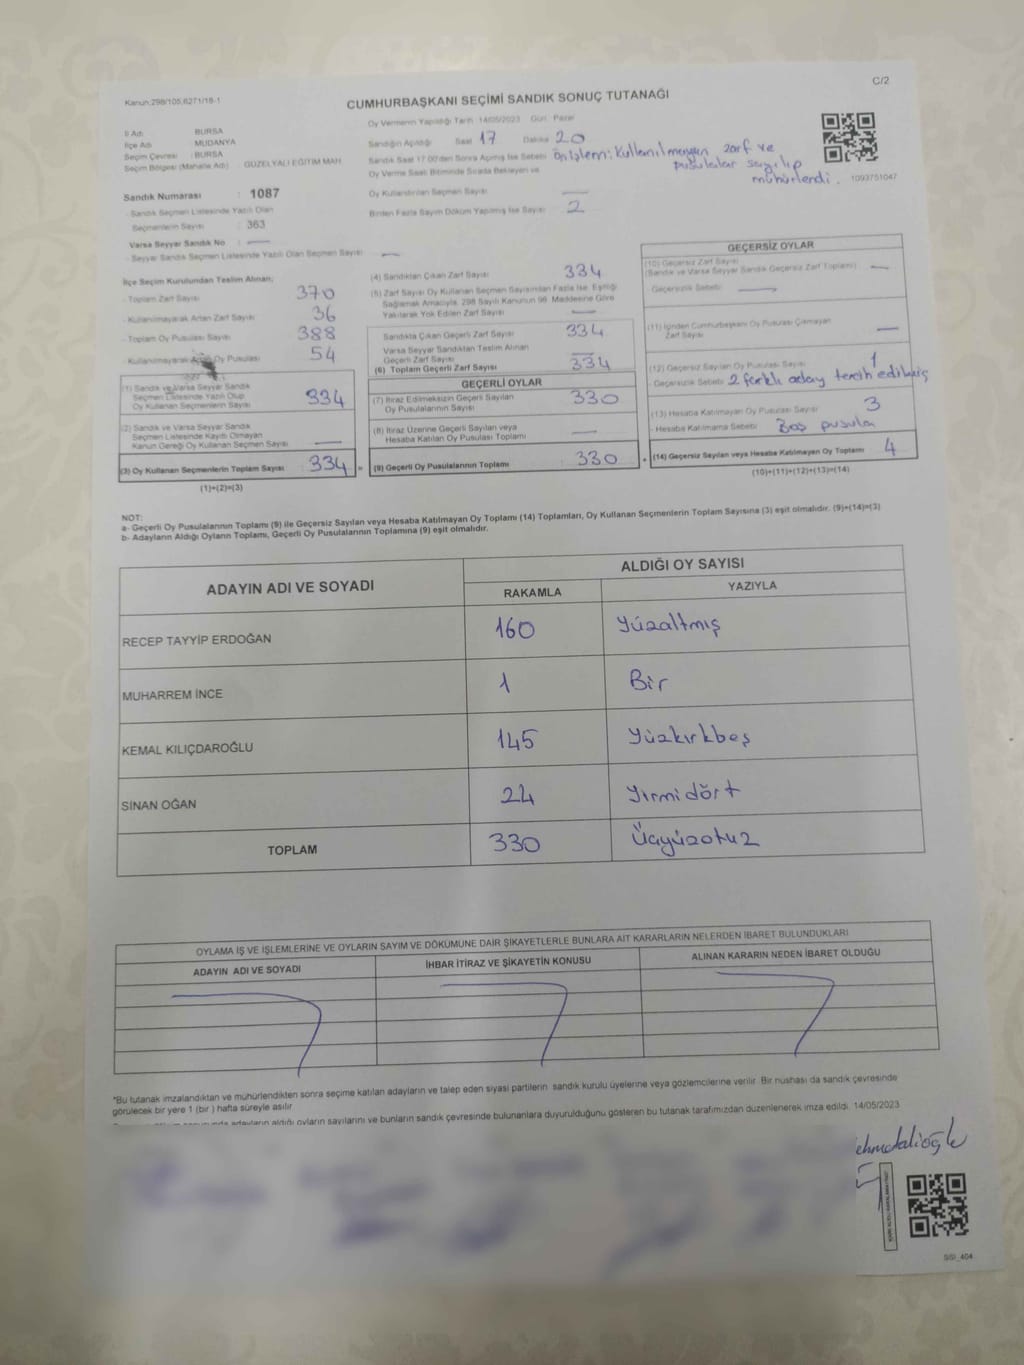 C/2
Kanun:298/105,6271/18-1
CUMHURBAŞKANI SEÇİMİ SANDIK SONUÇ TUTANAĞI
İl Adı : BURSA
İlçe Adı : MUDANYA
Seçim Çevresi : BURSA
Seçim Bölgesi (Mahalle Adı) : GÜZELYALI EĞİTİM MAH
Sandık Numarası : 1087
- Sandık Seçmen Listesinde Yazılı Olan
Seçmenlerin Sayısı : 363
Varsa Seyyar Sandık No : —
- Seyyar Sandık Seçmen Listesinde Yazılı Olan Seçmen Sayısı —
Oy Vermenin Yapıldığı Tarih :14/05/2023 Gün: Pazar
Sandığın Açıldığı Saat 17 Dakika 20
Sandık Saat 17.00'den Sonra Açılmış İse Sebebi Ön işlem: Kullanılmayan zarf ve
pusulalar sayılıp
mühürlendi.
1093751047
Oy Verme Saati Bitiminde Sırada Bekleyen ve
Oy Kullandırılan Seçmen Sayısı —
Birden Fazla Sayım Döküm Yapılmış İse Sayısı 2
İlçe Seçim Kurulundan Teslim Alınan;
- Toplam Zarf Sayısı 370
- Kullanılmayarak Artan Zarf Sayısı 36
- Toplam Oy Pusulası Sayısı 388
- Kullanılmayarak Oy Pusulası 54
(1) Sandık ve Varsa Seyyar Sandık
Seçmen Listesinde Yazılı Olup
Oy Kullanan Seçmenlerin Sayısı 334
(2) Sandık ve Varsa Seyyar Sandık
Seçmen Listesinde Kayıtlı Olmayan
Kanun Gereği Oy Kullanan Seçmen Sayısı —
(3) Oy Kullanan Seçmenlerin Toplam Sayısı 334 =
(1)+(2)=(3)
(4) Sandıktan Çıkan Zarf Sayısı 334
(5) Zarf Sayısı Oy Kullanan Seçmen Sayısından Fazla İse, Eşitliği
Sağlamak Amacıyla, 298 Sayılı Kanunun 98. Maddesine Göre
Yakılarak Yok Edilen Zarf Sayısı —
Sandıkta Çıkan Geçerli Zarf Sayısı 334
Varsa Seyyar Sandıktan Teslim Alınan
Geçerli Zarf Sayısı —
(6) Toplam Geçerli Zarf Sayısı 334
GEÇERLİ OYLAR
(7) İtiraz Edilmeksizin Geçerli Sayılan
Oy Pusulalarının Sayısı 330
(8) İtiraz Üzerine Geçerli Sayılan veya
Hesaba Katılan Oy Pusulası Toplamı —
(9) Geçerli Oy Pusulalarının Toplamı 330 +
GEÇERSİZ OYLAR
(10) Geçersiz Zarf Sayısı
(Sandık ve Varsa Seyyar Sandık Geçersiz Zarf Toplamı) —
- Geçersizlik Sebebi: —
(11) İçinden Cumhurbaşkanı Oy Pusulası Çıkmayan
Zarf Sayısı —
(12) Geçersiz Sayılan Oy Pusulası Sayısı 1
- Geçersizlik Sebebi 2 farklı aday tercih edilmiş
(13) Hesaba Katılmayan Oy Pusulası Sayısı 3
- Hesaba Katılmama Sebebi Boş pusula
(14) Geçersiz Sayılan veya Hesaba Katılmayan Oy Toplamı 4
(10)+(11)+(12)+(13)=(14)
NOT:
a- Geçerli Oy Pusulalarının Toplamı (9) ile Geçersiz Sayılan veya Hesaba Katılmayan Oy Toplamı (14) Toplamları, Oy Kullanan Seçmenlerin Toplam Sayısına (3) eşit olmalıdır. (9)+(14)=(3)
b- Adayların Aldığı Oyların Toplamı, Geçerli Oy Pusulalarının Toplamına (9) eşit olmalıdır.
ADAYIN ADI VE SOYADI ALDIĞI OY SAYISI
RAKAMLA YAZIYLA
RECEP TAYYİP ERDOĞAN 160 Yüzaltmış
MUHARREM İNCE 1 Bir
KEMAL KILIÇDAROĞLU 145 Yüzkırkbeş
SİNAN OĞAN 24 Yirmidört
TOPLAM 330 Üçyüzotuz
OYLAMA İŞ VE İŞLEMLERİNE VE OYLARIN SAYIM VE DÖKÜMÜNE DAİR ŞİKAYETLERLE BUNLARA AİT KARARLARIN NELERDEN İBARET BULUNDUKLARI
ADAYIN ADI VE SOYADI İHBAR İTİRAZ VE ŞİKAYETİN KONUSU ALINAN KARARIN NEDEN İBARET OLDUĞU
*Bu tutanak imzalandıktan ve mühürlendikten sonra seçime katılan adayların ve talep eden siyasi partilerin sandık kurulu üyelerine veya gözlemcilerine verilir. Bir nüshası da sandık çevresinde
görülecek bir yere 1 (bir ) hafta süreyle asılır.
adayların aldığı oyların sayılarını ve bunların sandık çevresinde bulunanlara duyurulduğunu gösteren bu tutanak tarafımızdan düzenlenerek imza edildi. 14/05/2023
SSI_404